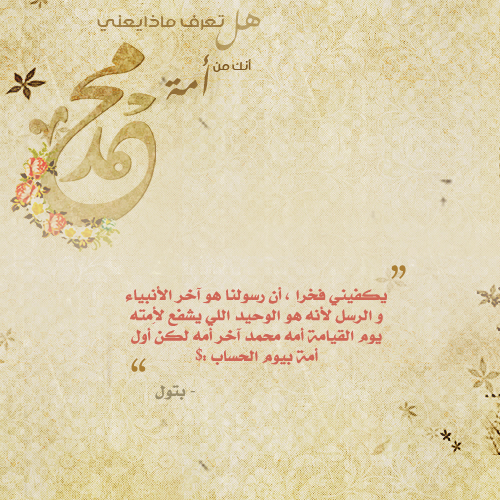 هل تعرف ماذا يعني
أنك من أمة
محمد
يكفيني فخرا ، أن رسولنا هو آخر الأنبياء
و الرسل لأنه هو الوحيد اللي يشفع لأمته
يوم القيامة أمه محمد آخر أمه لكن أول
أمة بيوم الحساب :$
- بتول